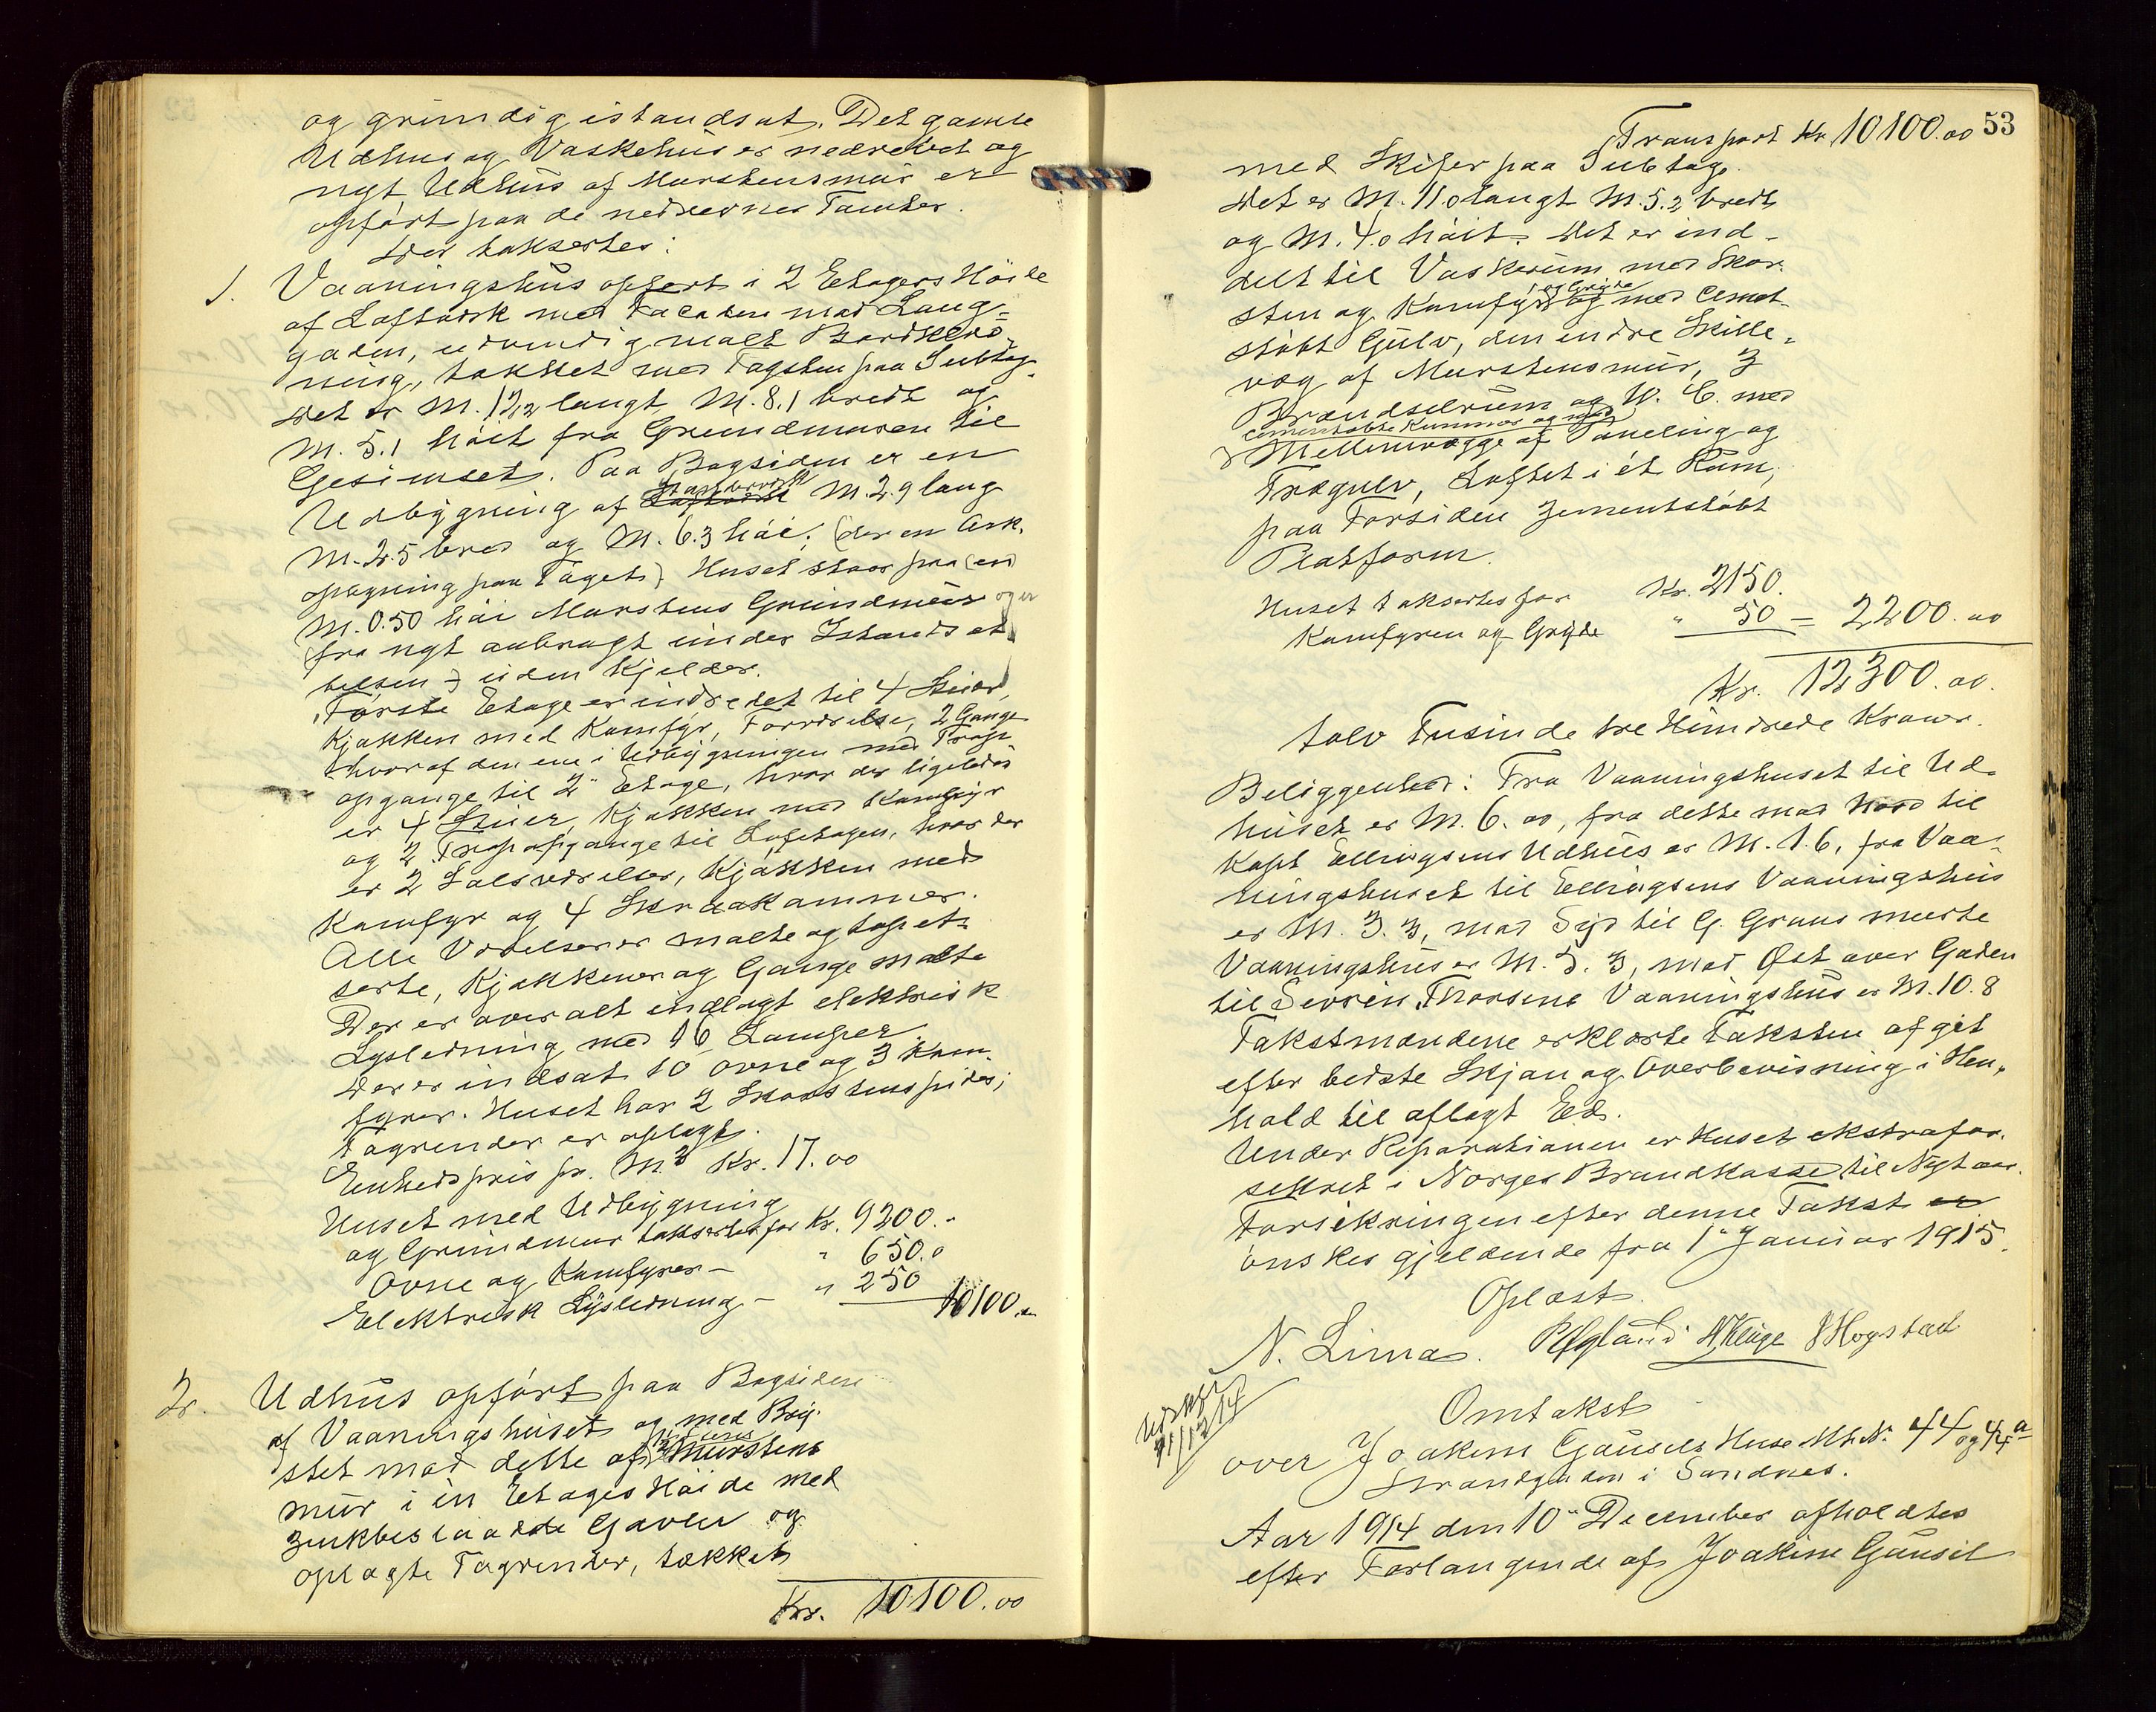 og grundig istandsat. Det gamle
Udhus og Vaskehus er nedrevet og
nyt Udhus af Murstensmur er
opført paa de nedrevnes Tomter.
Der taksertes:
1. Vaaningshus opført i 2 Etagers Høide
af Laftværk med Facaden mod Lang-
gaden, udvendig malt Bordklæd-
ning, tækket med Tagsten paa Subtag.
Det er M. 12,2 langt M. 8,1 bredt og
M. 5,1 høit fra Grundmuren til
Gesimset. Paa Bagsiden er en
Udbygning af Stavværk M. 2,9 lang
M. 2.5 bred og M. 6.3 høi; (der en Ark-
opbygning paa Taget). Huset staar paa (en)
M. 0.50 høi Murstens Grundmur og er
(fra nyt anbragt under Istandsæt-
telsen) uden Kjelder.
Første Etage er indredet til 4 Stuer,
Kjøkken med Komfyr, Forværelse, 2 Gange
hvoraf den ene i Udbygningen med Trap-
opgange til 2den Etage, hvor der ligeledes
er 4 Stuer, Kjøkken med Komfyr
og 2 Trapopgange til Loftetagen, hvor der
er 2 Salsværelser, Kjøkken med
Komfyr og 4 Skraakammer.
Alle Værelser er malte og tapet-
serte, Kjøkkener og Gange malte
Der er overalt indlagt elektrisk
Lysledning med 16 Lamper.
Der er indsat 10 Ovne og 3 Kom-
fyrer. Huset har 2 Skorstenspiber;
Tagrender er oplagt.
Enhedspris pr. M.3 Kr. 17.00
Huset med Udbygning
og Grundmur taksertes for Kr. 9200.-
Ovne og Komfyrer - " 650.0
Elektrisk Lysledning - " 250 10100.00
2. Udhus opført paa Bagsiden
af Vaaningshuset og med Byg-
stet mod dette af 1/2 Stens Murstens
mur i en Etages Høide med
zinkbeslaaede Gavler og
oplagte Tagrender, tækket
Kr. 10100.00
53
Transport Kr. 10100.00
med Skifer paa Subtag.
Det er M. 11.0 langt M. 5.2 bredt
og M. 4.0 høit. Det er ind-
delt til Vaskerum med Skor-
sten og Komfyr og Gryde og med Cemet-
støbt Gulv, den indre Skille-
væg af Murstensmur, 3
Brændselrum og W. C. med
cementstøbte Kummer og med
Mellemvægge af Paneling og
Trægulv, Loftet i ét Rum,
paa Forsiden Zementstøbt
Platform.
Huset taksertes for Kr. 2150.
Komfyren og Gryde " 50 = 2200.00
Kr. 12300.00.
tolv Tusinde tre Hundrede Kroner.
Beliggenhed: Fra Vaaningshuset til Ud-
huset er M. 6.00, fra dette mod Nord til
Kapt Ellingsens Udhus er M. 1.6, fra Vaa-
ningshuset til Ellingsens Vaaningshus
er M. 3.3, mod Syd til G. Graus meerte
Vaaningshus er M. 5.3, mod Øst over Gaden
til Sevrin Thorsens Vaaningshus er M. 10.8
Takstmændene erklærte Taksten afgit
efter bedste Skjøn og Overbevisning i Hen-
hold til aflagt Ed.
Under Reparationen er Huset ekstrafor-
sikret i Norges Brandkasse til Nytaar.
Forsikringen efter denne Takst er
ønskes gjeldende fra 1ste Januar 1915.
Oplæst.
N. Lima. H. Kluge Hogstad
Omtakst
over Joakim Gausels Huse Mt. Nr. 44 og 44a
Strandgaden i Sandnes.
Aar 1914 den 10de December afholdtes
efter Forlangende af Joakim Gausel